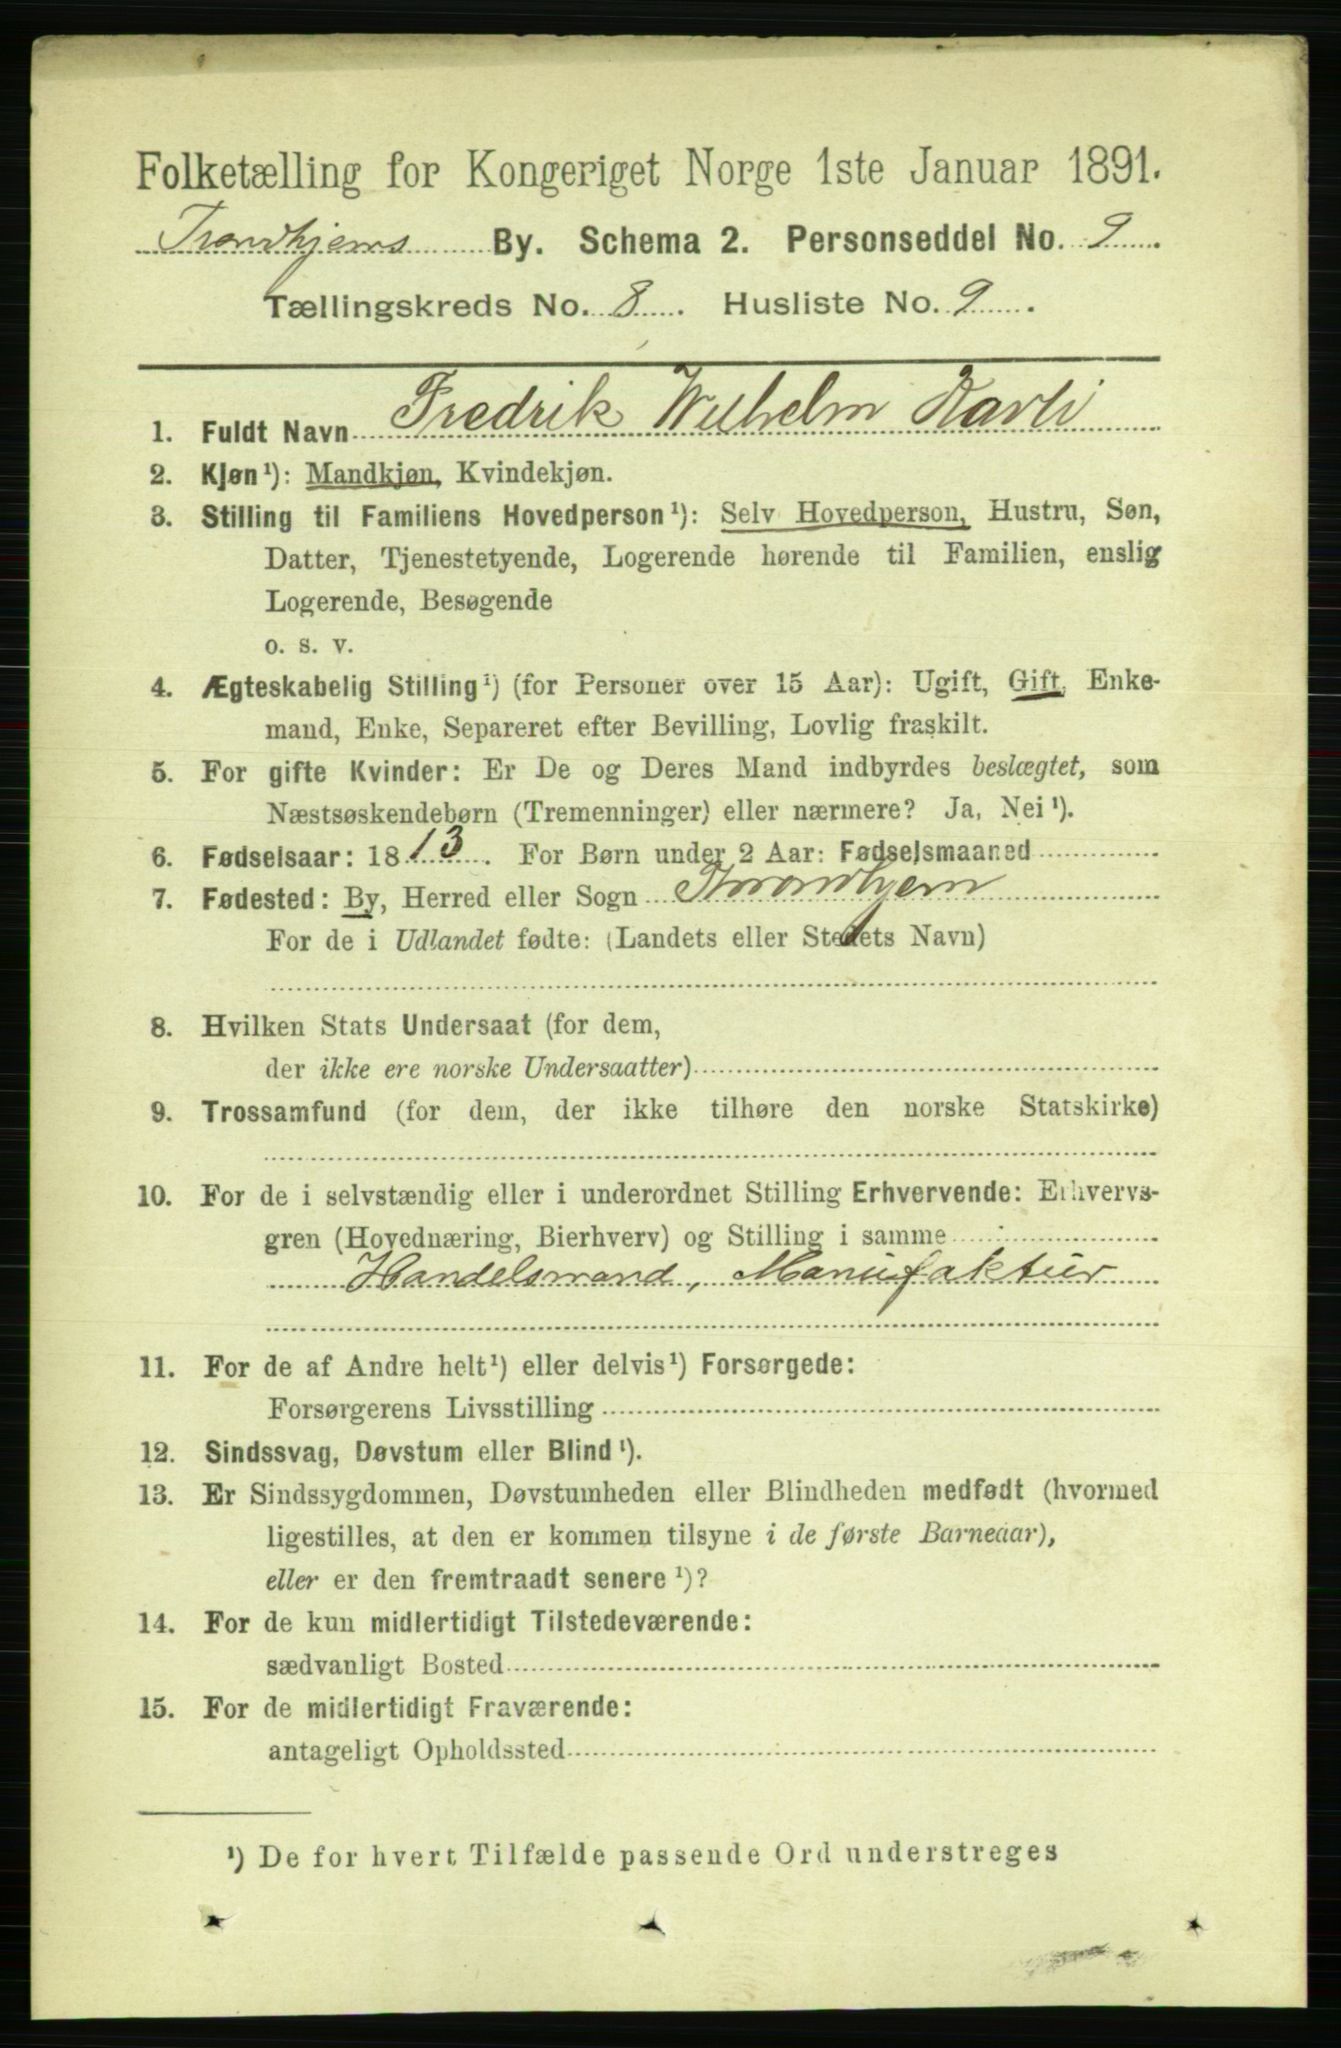 Folketælling for Kongeriget Norge 1ste Januar 1891.
Trondhjems By. Schema 2. Personseddel No. 9.
Tællingskreds No. 8. Husliste No. 9.
1. Fuldt Navn Fredrik Wilhelm Ravli
2. Kjøn¹): Mandkjøn, Kvindekjøn.
3. Stilling til Familiens Hovedperson¹): Selv Hovedperson, Hustru, Søn,
Datter, Tjenestetyende, Logerende hørende til Familien, enslig
Logerende, Besøgende
o. s. v.
4. Ægteskabelig Stilling¹) (for Personer over 15 Aar): Ugift, Gift, Enke-
mand, Enke, Separeret efter Bevilling, Lovlig fraskilt.
5. For gifte Kvinder: Er De og Deres Mand indbyrdes beslægtet, som
Næstsøskendebørn (Tremenninger) eller nærmere? Ja, Nei¹).
6. Fødselsaar: 1813. For Børn under 2 Aar: Fødselsmaaned
7. Fødested: By, Herred eller Sogn Throndhjem
For de i Udlandet fødte: (Landets eller Stedets Navn)
8. Hvilken Stats Undersaat (for dem,
der ikke ere norske Undersaatter)
9. Trossamfund (for dem, der ikke tilhøre den norske Statskirke)
10. For de i selvstændig eller i underordnet Stilling Erhvervende: Erhvervs-
gren (Hovednæring, Bierhverv) og Stilling i samme
Handelsmand, Manufaktur
11. For de af Andre helt¹) eller delvis¹) Forsørgede:
Forsørgerens Livsstilling
12. Sindssvag, Døvstum eller Blind¹).
13. Er Sindssygdommen, Døvstumheden eller Blindheden medfødt (hvormed
ligestilles, at den er kommen tilsyne i de første Barneaar),
eller er den fremtraadt senere¹)?
14. For de kun midlertidigt Tilstedeværende:
sædvanligt Bosted
15. For de midlertidigt Fraværende:
antageligt Opholdssted
¹) De for hvert Tilfælde passende Ord understreges